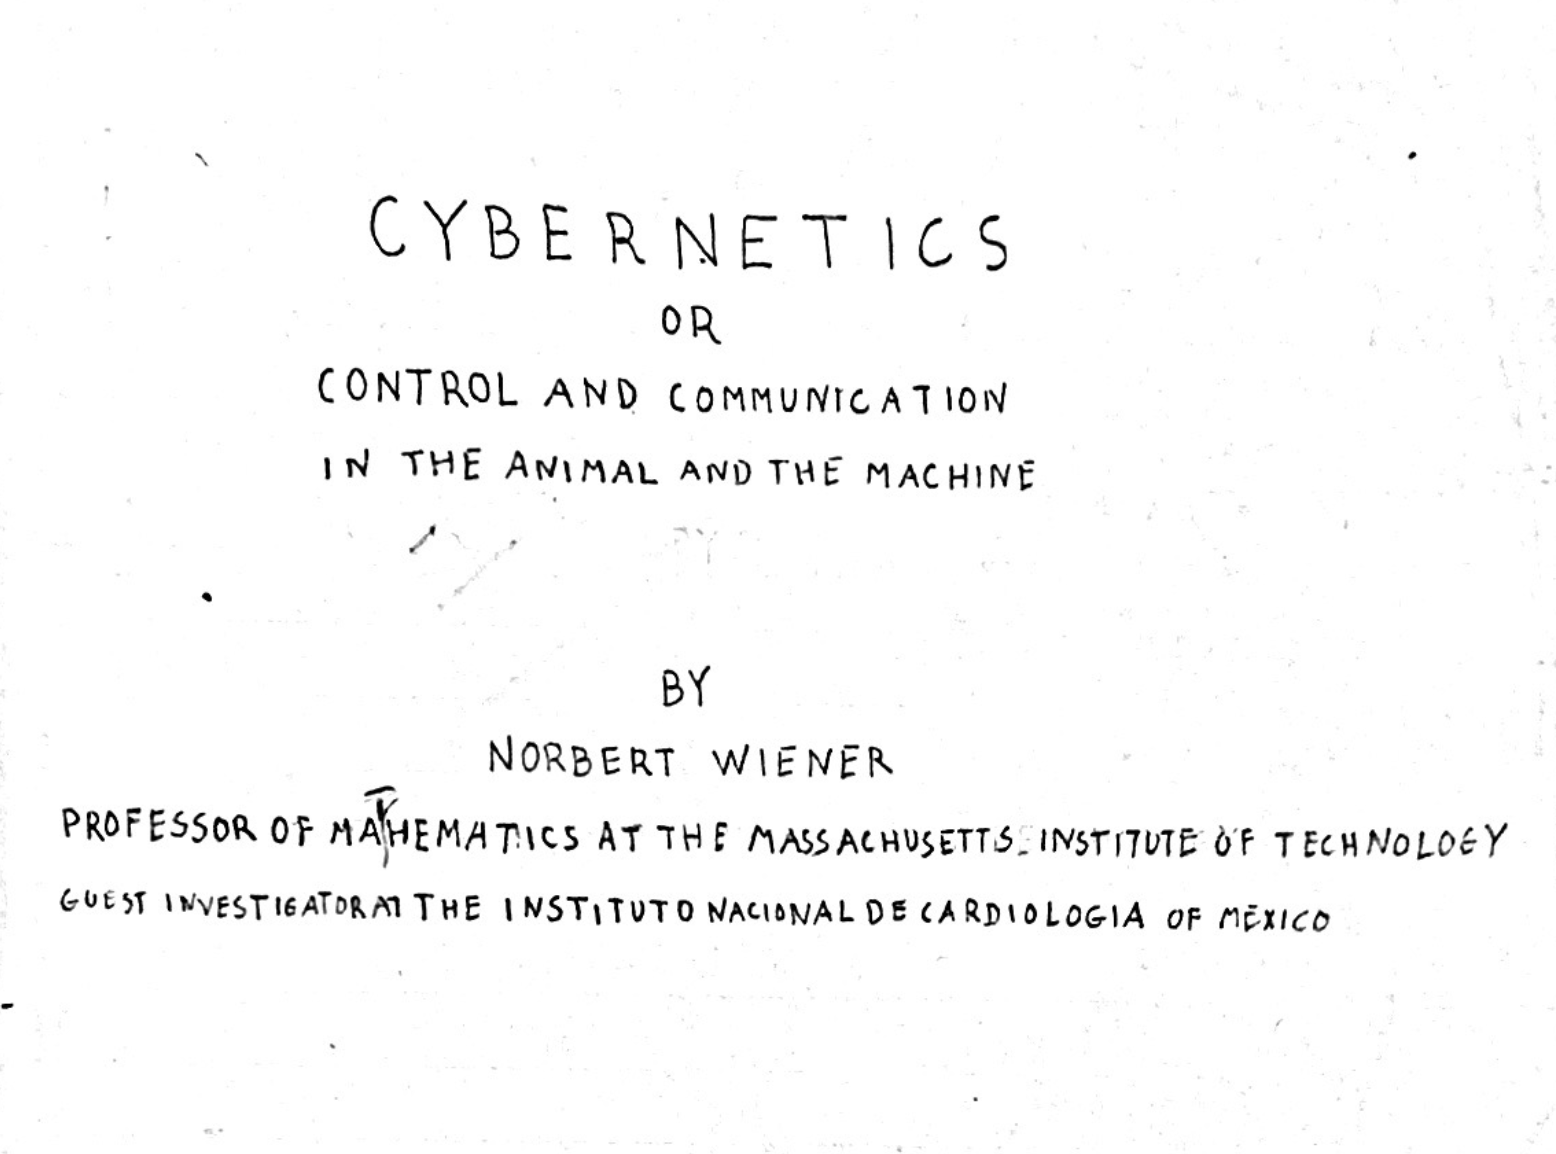 CYBERNETICS
OR
CONTROL AND COMMUNICATION
IN THE ANIMAL AND THE MACHINE
BY
NORBERT WIENER
PROFESSOR OF MATHEMATICS AT THE MASSACHUSETTS INSTITUTE OF TECHNOLOGY
GUEST INVESTIGATOR AT THE INSTITUTO NACIONAL DE CARDIOLOGIA OF MEXICO